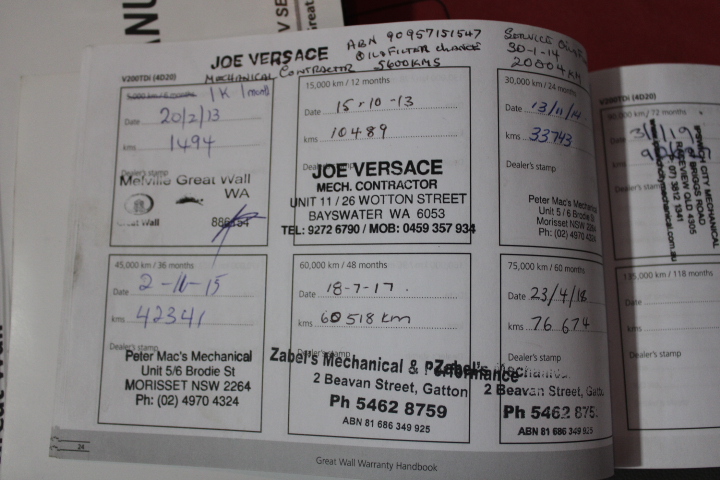 JOE VERSACE
ABN 90957151547
MECHANICAL CONTRACTOR
OIL & FILTER CHANGE
5600 KMS
30-1-14
20004 KM
V200TDi (4D20)
1K 1 month
Date 20/2/13
kms 1494
Dealer's stamp
Melville Great Wall
WA
Great Wall
15,000 km / 12 months
Date 15-10-13
kms 10489
JOE VERSACE
MECH. CONTRACTOR
UNIT 11 / 26 WOTTON STREET
BAYSWATER WA 6053
TEL: 9272 6790 / MOB: 0459 357 934
30,000 km / 24 months
Date 13/11/14
kms 33743
Dealer's stamp
Peter Mac's Mechanical
Unit 5/6 Brodie St
Morisset NSW 2264
Ph: (02) 4970
45,000 km / 36 months
Date 2-11-15
kms 42341
Dealer's stamp
Peter Mac's Mechanical
Unit 5/6 Brodie St
MORISSET NSW 2264
Ph: (02) 4970 4324
60,000 km / 48 months
Date 18-7-17.
kms 60518 km
Dealer's stamp
Zabel's Mechanical & Performance
2 Beavan Street, Gatton
Ph 5462 8759
ABN 81 686 349 925
75,000 km / 60 months
Date 23/4/18
kms 76 674
Zabel's Mechanical
2 Beavan Street, Gatton
Ph 5462 875
ABN 81 686 349 925
V200TDi (4D20)
90,000 km / 72 months
IPSWICH CITY MECHANICAL
BRIGGS ROAD
RACEVIEW QLD 4305
(07) 3812 1341
135,000 km / 118 months
Date
kms
Dealer's stamp
24
Great Wall Warranty Handbook